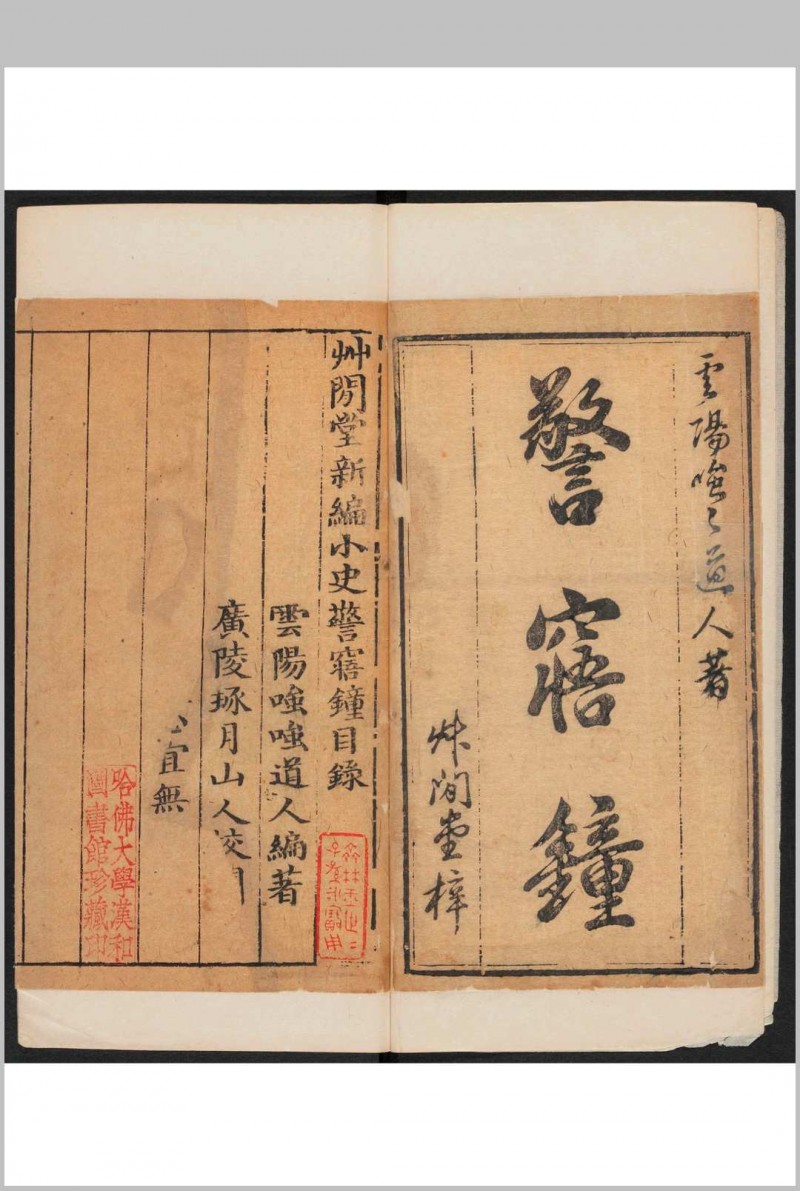 雲陽嗤〻道人著
警寤鐘
艸閒堂梓
艸閒堂新編小史警寤鐘目錄
雲陽嗤嗤道人編著
廣陵琢月山人挍閱
宜無
哈佛大學漢和
圖書館珍藏印